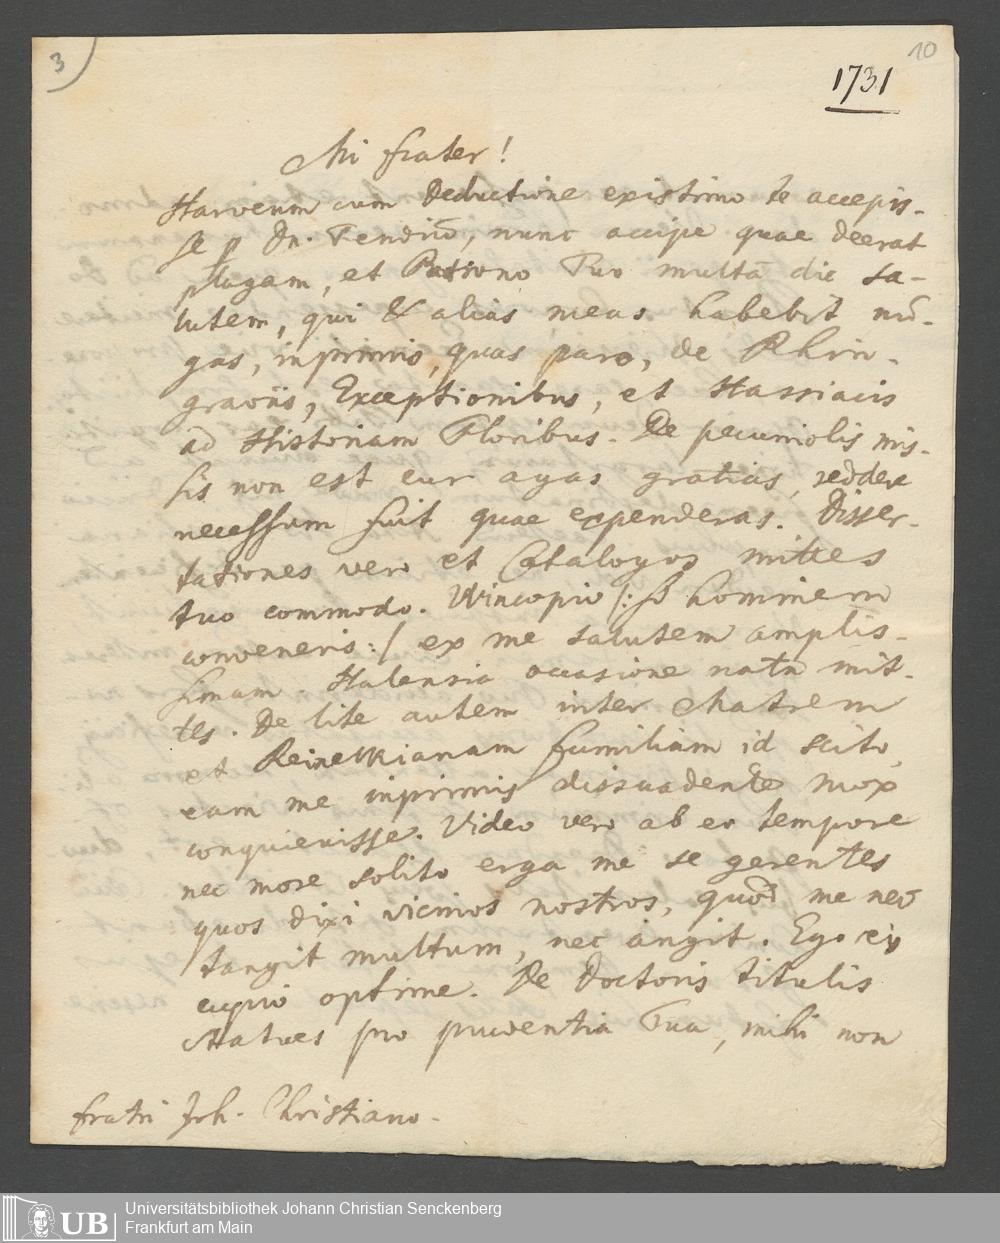 3
10
1731
Mi frater!
Harveum cum Deductione existimo te accepis-
se p Dn. Fendium, nunc accipe quae deerat
plagam, et Patrono Tuo multā dic sa-
lutem, qui & alias meas habebit nū-
gas, inprimis, quas paro, de Rhin-
graviis, Exceptionibus, et Hassiacis
ad Historiam Floribus. De pecuniolis mis-
sis non est cur agas gratias, reddere
necessum fuit quae expenderas. Disser-
tationes vero et Catalogos mittes
tuo commodo. Wincopio /: si hominem
conveneris :/ ex me salutem amplis-
simam. Halensia occasione nata mit-
tes. De lite autem inter Matrem
et Reineckianam familiam id scito,
eam me inprimis dissuadente mox
conquievisse. Video vero ab eo tempore
nec more solito erga me se gerentes
quos dixi vicinos nostros, quod me nec
tangit multum, nec angit. Ego eis
cupio optime. De Doctoris titulis
statues pro prudentia Tua, mihi non
fratri Joh. Christiano.
UB
Universitätsbibliothek Johann Christian Senckenberg
Frankfurt am Main